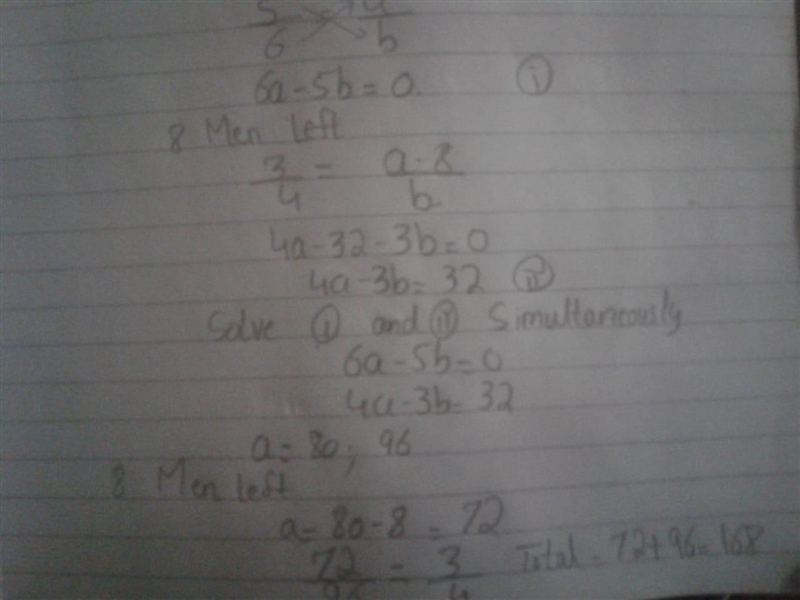 5/6 = a/b
6a-5b=0. (i)
8 Men left
3/4 = a-8/b
4a-32-3b=0
4a-3b=32 (ii)
Solve (i) and (ii) Simultaneously
6a-5b=0
4a-3b=32
a=80; 96
8 Men left
a=80-8=72
72/96 = 3/4 Total = 72+96=168